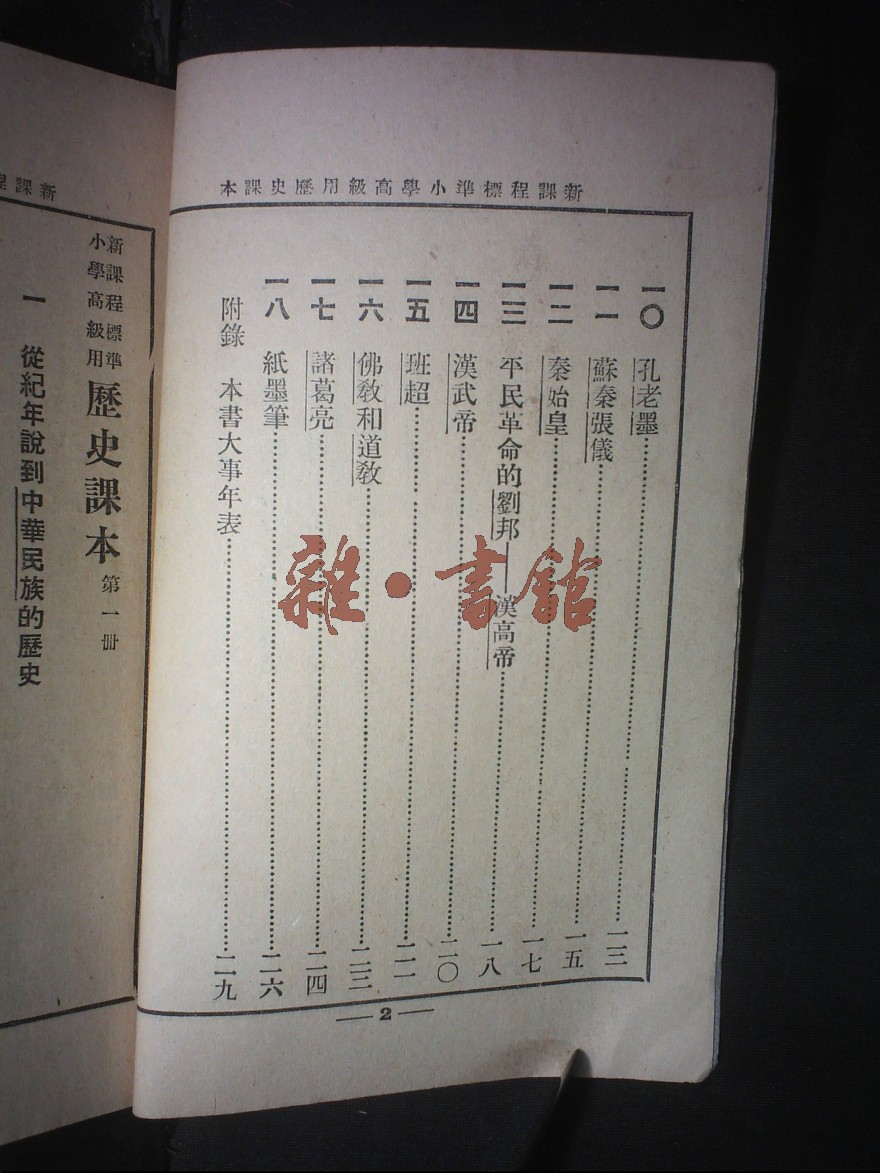 新課程標準小學高級用歷史課本
一〇 孔老墨 一三
一一 蘇秦張儀 一五
一二 秦始皇 一七
一三 平民革命的劉邦——漢高帝 一八
一四 漢武帝 二〇
一五 班超 二一
一六 佛教和道教 二三
一七 諸葛亮 二四
一八 紙墨筆 二六
附錄 本書大事年表 二九
— 2 —
雜·書館
新課程
新課程標準
小學高級用
歷史課本 第一冊
一 從紀年說到中華民族的歷史